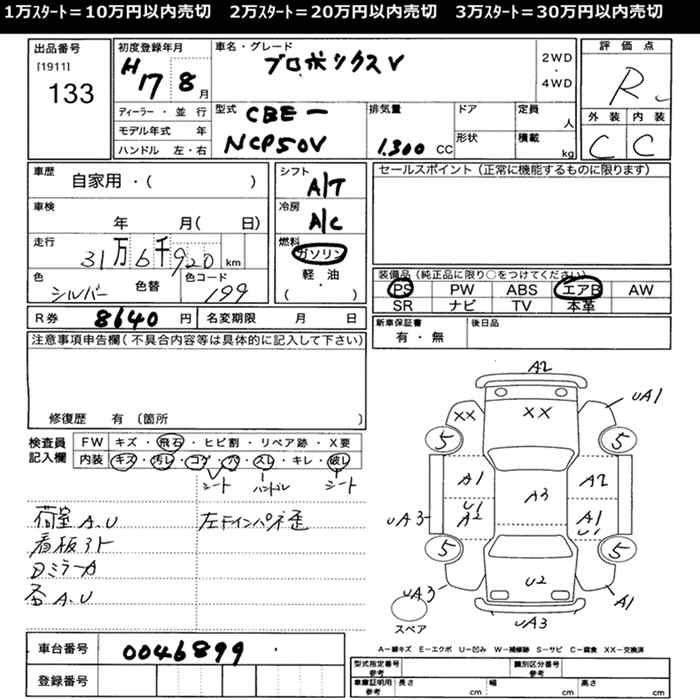 1万ｽﾀｰﾄ＝10万円以内売切　2万ｽﾀｰﾄ＝20万円以内売切　3万ｽﾀｰﾄ＝30万円以内売切
出品番号
[1911]
133
初度登録年月
H17 8月
車名・グレード
プロボックスV
2WD
・
4WD
評価点
R
外装 内装
C C
ディーラー・並行
モデル年式 年
ハンドル 左・右
型式
CBE-
NCP50V
排気量
1.300 CC
ドア
形状
定員
人
積載
kg
車歴
自家用・( )
車検
年 月( 日)
走行
31万6千920 km
色
シルバー
色替
色コード
199
シフト
A/T
冷房
A/C
燃料
ガソリン
・
軽・油
( )
セールスポイント(正常に機能するものに限ります)
装備品(純正品に限り○をつけてください)
PS PW ABS エアB AW
SR ナビ TV 本革
新車保証書
有・無
後日品
R券 8640 円 名変期限 月 日
注意事項申告欄(不具合内容等は具体的に記入して下さい)
修復歴 有 〔箇所 〕
検査員
記入欄
FW キズ・飛石・ヒビ割・リペア跡・X要
内装 キズ・汚レ・コゲ・穴・スレ・キレ・破レ
シート ハンドル シート
荷室A.U
看板アト
Dミラー A
A.U
A2
UA1
XX
XX
5
5
A1
A2
A3
U1
A2
A1
U1
UA3
5
5
U2
UA3
A1
UA3
スペア
A－線キズ E－エクボ U－凹み W－補修跡 S－サビ C－腐食 XX－交換済
車台番号
0046899
登録番号
型式指定番号
参考
類別区分番号
参考
車庫証明用
参考
長さ cm 幅 cm 高さ cm